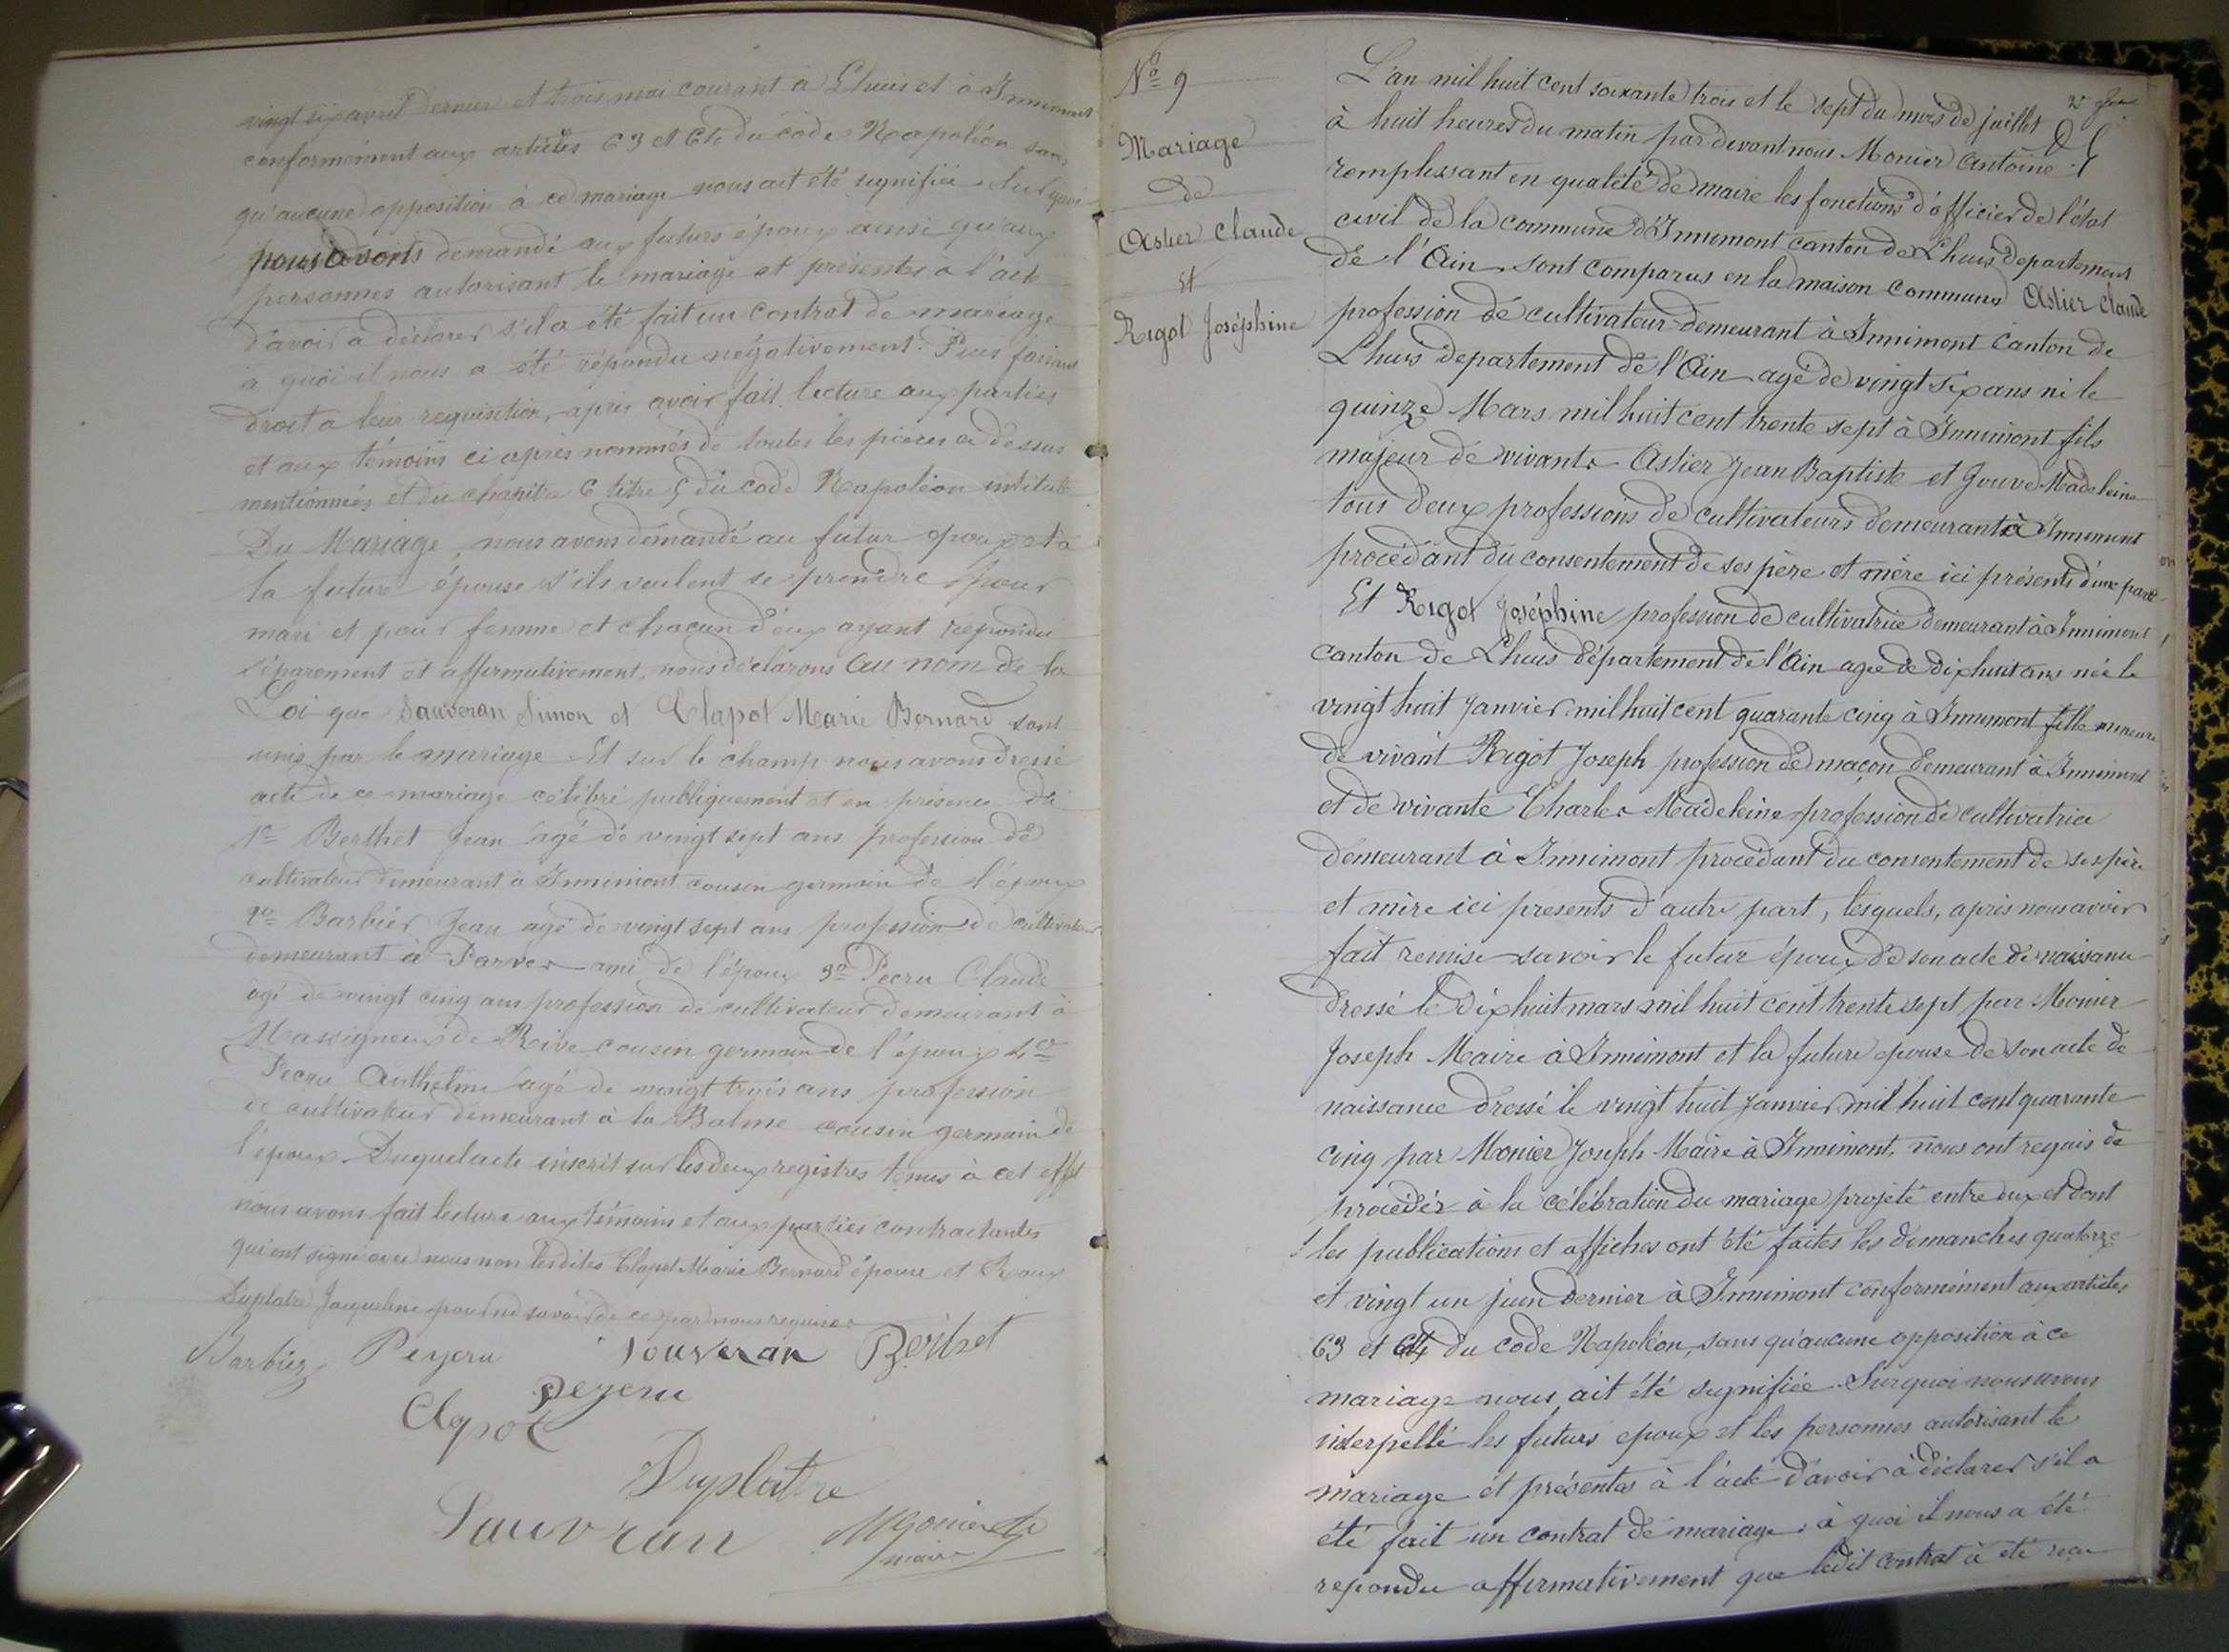 vingt six avril dernier et trois mai courant à Lhuis et à Innimont
conformément aux articles 63 et 64 du code Napoléon sans
qu'aucune opposition à ce mariage nous ait été signifiée
nous avons demandé aux futurs époux ainsi qu'aux
personnes autorisant le mariage et présentes à l'acte
d'avoir à déclarer s'il a été fait un contrat de mariage
à quoi il nous a été répondu négativement. Puis faisant
droit a leur requisition, après avoir fait lecture aux parties
et aux témoins ci après nommés de toutes les pièces ci dessus
mentionnées et du chapitre 6 titre 5 du code Napoléon intitulé
Du Mariage, nous avons demandé au futur époux et à
la future épouse s'ils veulent se prendre pour
mari et pour femme et chacun d'eux ayant repondu
séparement et affirmativement, nous déclarons au nom de la
Loi que Sauveran Simon et Clapot Marie Bernard sont
unis par le mariage Et sur le champ nous avons dressé
acte de ce mariage célébré publiquement et en présence de
1º Berthet Jean âgé de vingt sept ans profession de
cultivateur demeurant à Innimont cousin germain de l'époux
2º Barbier Jean agé de vingt sept ans profession de cultivateur
demeurant à Parves ami de l'époux 3º Pecru Claude
agé de vingt cinq ans profession de cultivateur demeurant à
Massigneux de Rive cousin germain de l'époux 4º
Pecru Anthelme agé de vingt trois ans profession
de cultivateur demeurant à la Balme cousin germain de
l'époux. Duquel acte inscrit sur les deux registres tenus à cet effet
nous avons fait lecture aux témoins et aux parties contractantes
qui ont signé avec nous non lesdites Clapot Marie Bernard épouse et Roux
Duplatre Jacqueline pour ne savoir de ce par nous requises
Barbier Peyeru Souveran Berthet
Peyeru
Clapot
Duplatre
Sauvran Monier
maire
Nº 9
Mariage
de
Astier Claude
Et
Rigot Joséphine
L'an mil huit cent soixante trois et le sept du mois de juillet
à huit heures du matin par devant nous Monier Antoine
remplissant en qualité de maire les fonctions d'officier de l'état
civil de la commune d'Innimont canton de Lhuis departement
de l'Ain, sont comparus en la maison commune Astier Claude
profession de cultivateur demeurant à Innimont canton de
Lhuis departement de l'Ain agé de vingt six ans né le
quinze Mars mil huit cent trente sept à Innimont fils
majeur de vivants Astier Jean Baptiste et Jouve Madeleine
tous deux professions de cultivateurs demeurant à Innimont
procédant du consentement de ses père et mère ici présents d'une part
Et Rigot Joséphine profession de cultivatrice demeurant à Innimont
canton de Lhuis département de l'Ain agée de dix huit ans née le
vingt huit Janvier mil huit cent quarante cinq à Innimont fille mineure
de vivant Rigot Joseph profession de maçon demeurant à Innimont
et de vivante Charles Madeleine profession de cultivatrice
demeurant à Innimont procédant du consentement de ses père
et mère ici presents d'autre part, lesquels, après nous avoir
fait remise savoir le futur époux de son acte de naissance
dressé le dix huit mars mil huit cent trente sept par Monier
Joseph Maire à Innimont et la future epouse de son acte de
naissance dressé le vingt huit Janvier mil huit cent quarante
cinq par Monier Joseph Maire à Innimont, nous ont requis de
procéder à la célébration du mariage projeté entre eux et dont
les publications et affiches ont été faites les dimanches quatorze
et vingt un juin dernier à Innimont conformément aux articles
63 et 64 du code Napoléon, sans qu'aucune opposition à ce
mariage nous ait été signifiée. Sur quoi nous avons
interpellé les futurs epoux et les personnes autorisant le
mariage et présentes à l'acte d'avoir à déclarer s'il a
été fait un contrat de mariage, à quoi il nous a été
repondu affirmativement que ledit contrat à été reçu